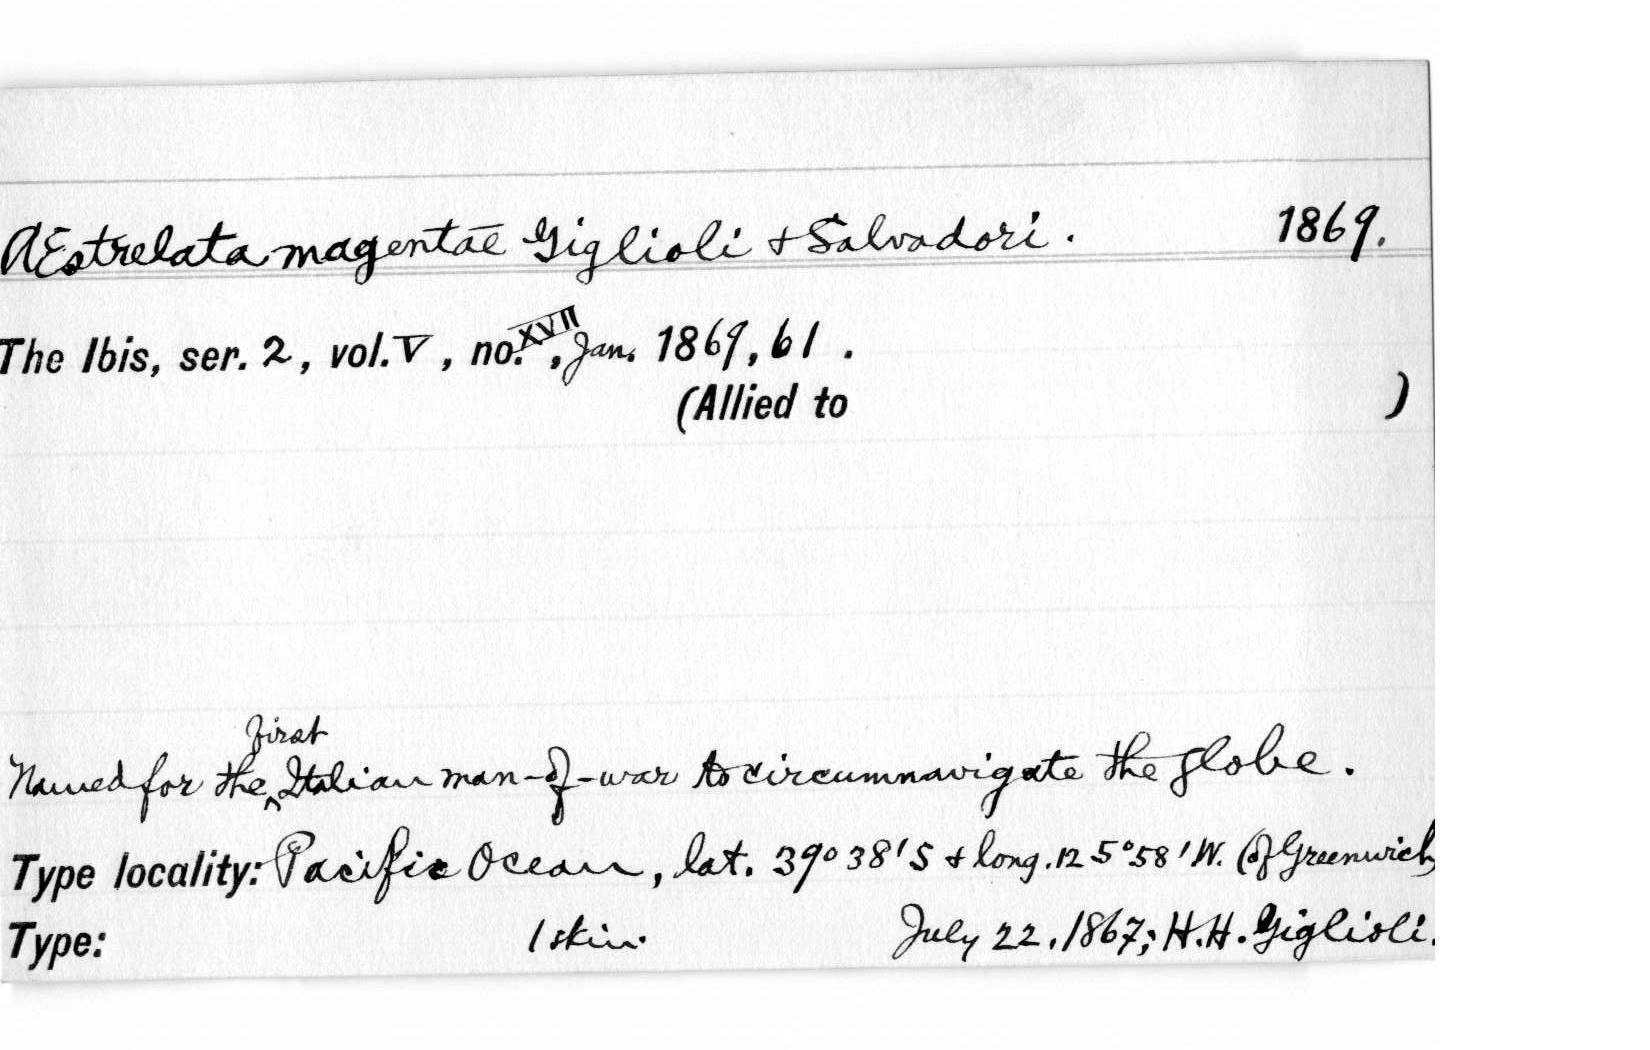 AEstrelata magentae Giglioli & Salvadori. 1869.
The Ibis, ser. 2, vol. V, no. XVII, Jan. 1869, 61.
(Allied to )
Named for the first Italian man-of-war to circumnavigate the globe.
Type locality: Pacific Ocean, lat. 39°38'S & long. 125°58'W. (of Greenwich)
Type: 1 skin. July 22, 1867; H.H. Giglioli.